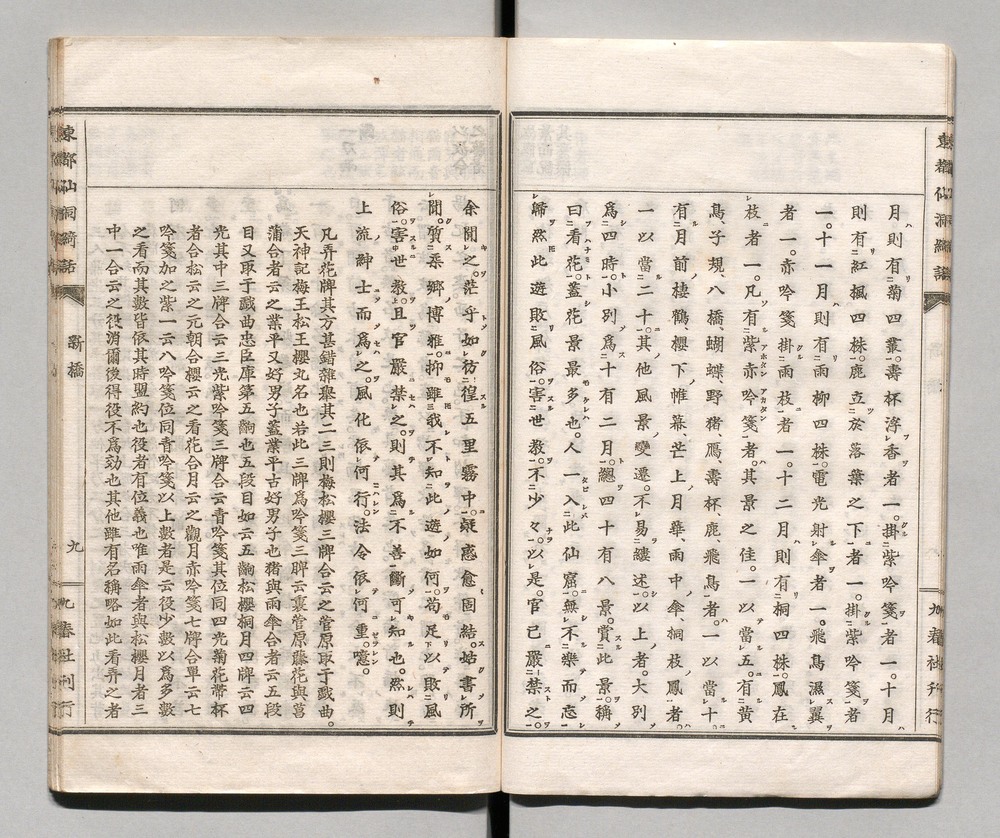 東都仙洞綺話
九春社刊行
月則有菊四叢。壽杯滓香者一。掛紫吟箋者一。十月
則有紅楓四株。鹿立於落葉之下者一。掛紫吟箋者
一。十一月則有雨柳四株。電光射傘者一。飛鳥濕翼
者一。赤吟箋掛雨枝者一。十二月則有桐四株。鳳在
枝者一。凡有紫赤吟箋者。其景之佳。一以當五。有黄
鳥、子規、八橋、蝴蝶、野猪、鴈、壽杯、鹿、飛鳥者。一以當十。
有月前棲鶴、櫻下帷幕芒上月華、雨中傘、桐枝鳳者。
一以當二十。其他風景變遷。不易縷述。以上者。大別
爲四時。小別爲十有二月。總四十有八景。賞此景。稱
曰看花。蓋花景最多也。人一入此仙窟。無不樂而忘
歸。然此遊敗風俗。害世教。不少々。以是。官已嚴禁之。
余聞之。茫乎如彷徨五里霧中。疑惑愈固結。姑書所
聞。質系鄉博雅。抑雖我不知此遊如何。苟足以敗風
俗。害世教。且官嚴禁之。則其爲不善斷可知也。然則
上流紳士而爲之。風化依何行。法令依何重。噫。
凡弄花牌其方甚錯雜擧其二三則梅松櫻三牌合云之菅原取于戲曲。
天神記梅王松王櫻丸名也若此三牌爲吟箋三牌云裏菅原藤花與菖
蒲合者云之業平又好男子蓋業平古好男子也猪與雨傘合者云五段
目又取于戲曲忠臣庫第五齣也五段目如云五齣松櫻桐月四牌云四
光其中三牌合云三光紫吟箋三牌合云青吟箋其位同四光菊花帶杯
者合松云之元朝合櫻云之看花合月云之觀月赤吟箋七牌合單云七
吟箋加之紫一云八吟箋位同青吟箋以上數者是云役少數以爲多數
之看而其數皆依其時盟約也役者有位義也唯雨傘者與松櫻月者三
中一合云之役消爾後得役不爲効也其他雖有名稱略如此看弄之者
東都仙洞綺話
斷橋
九
九春社刊行